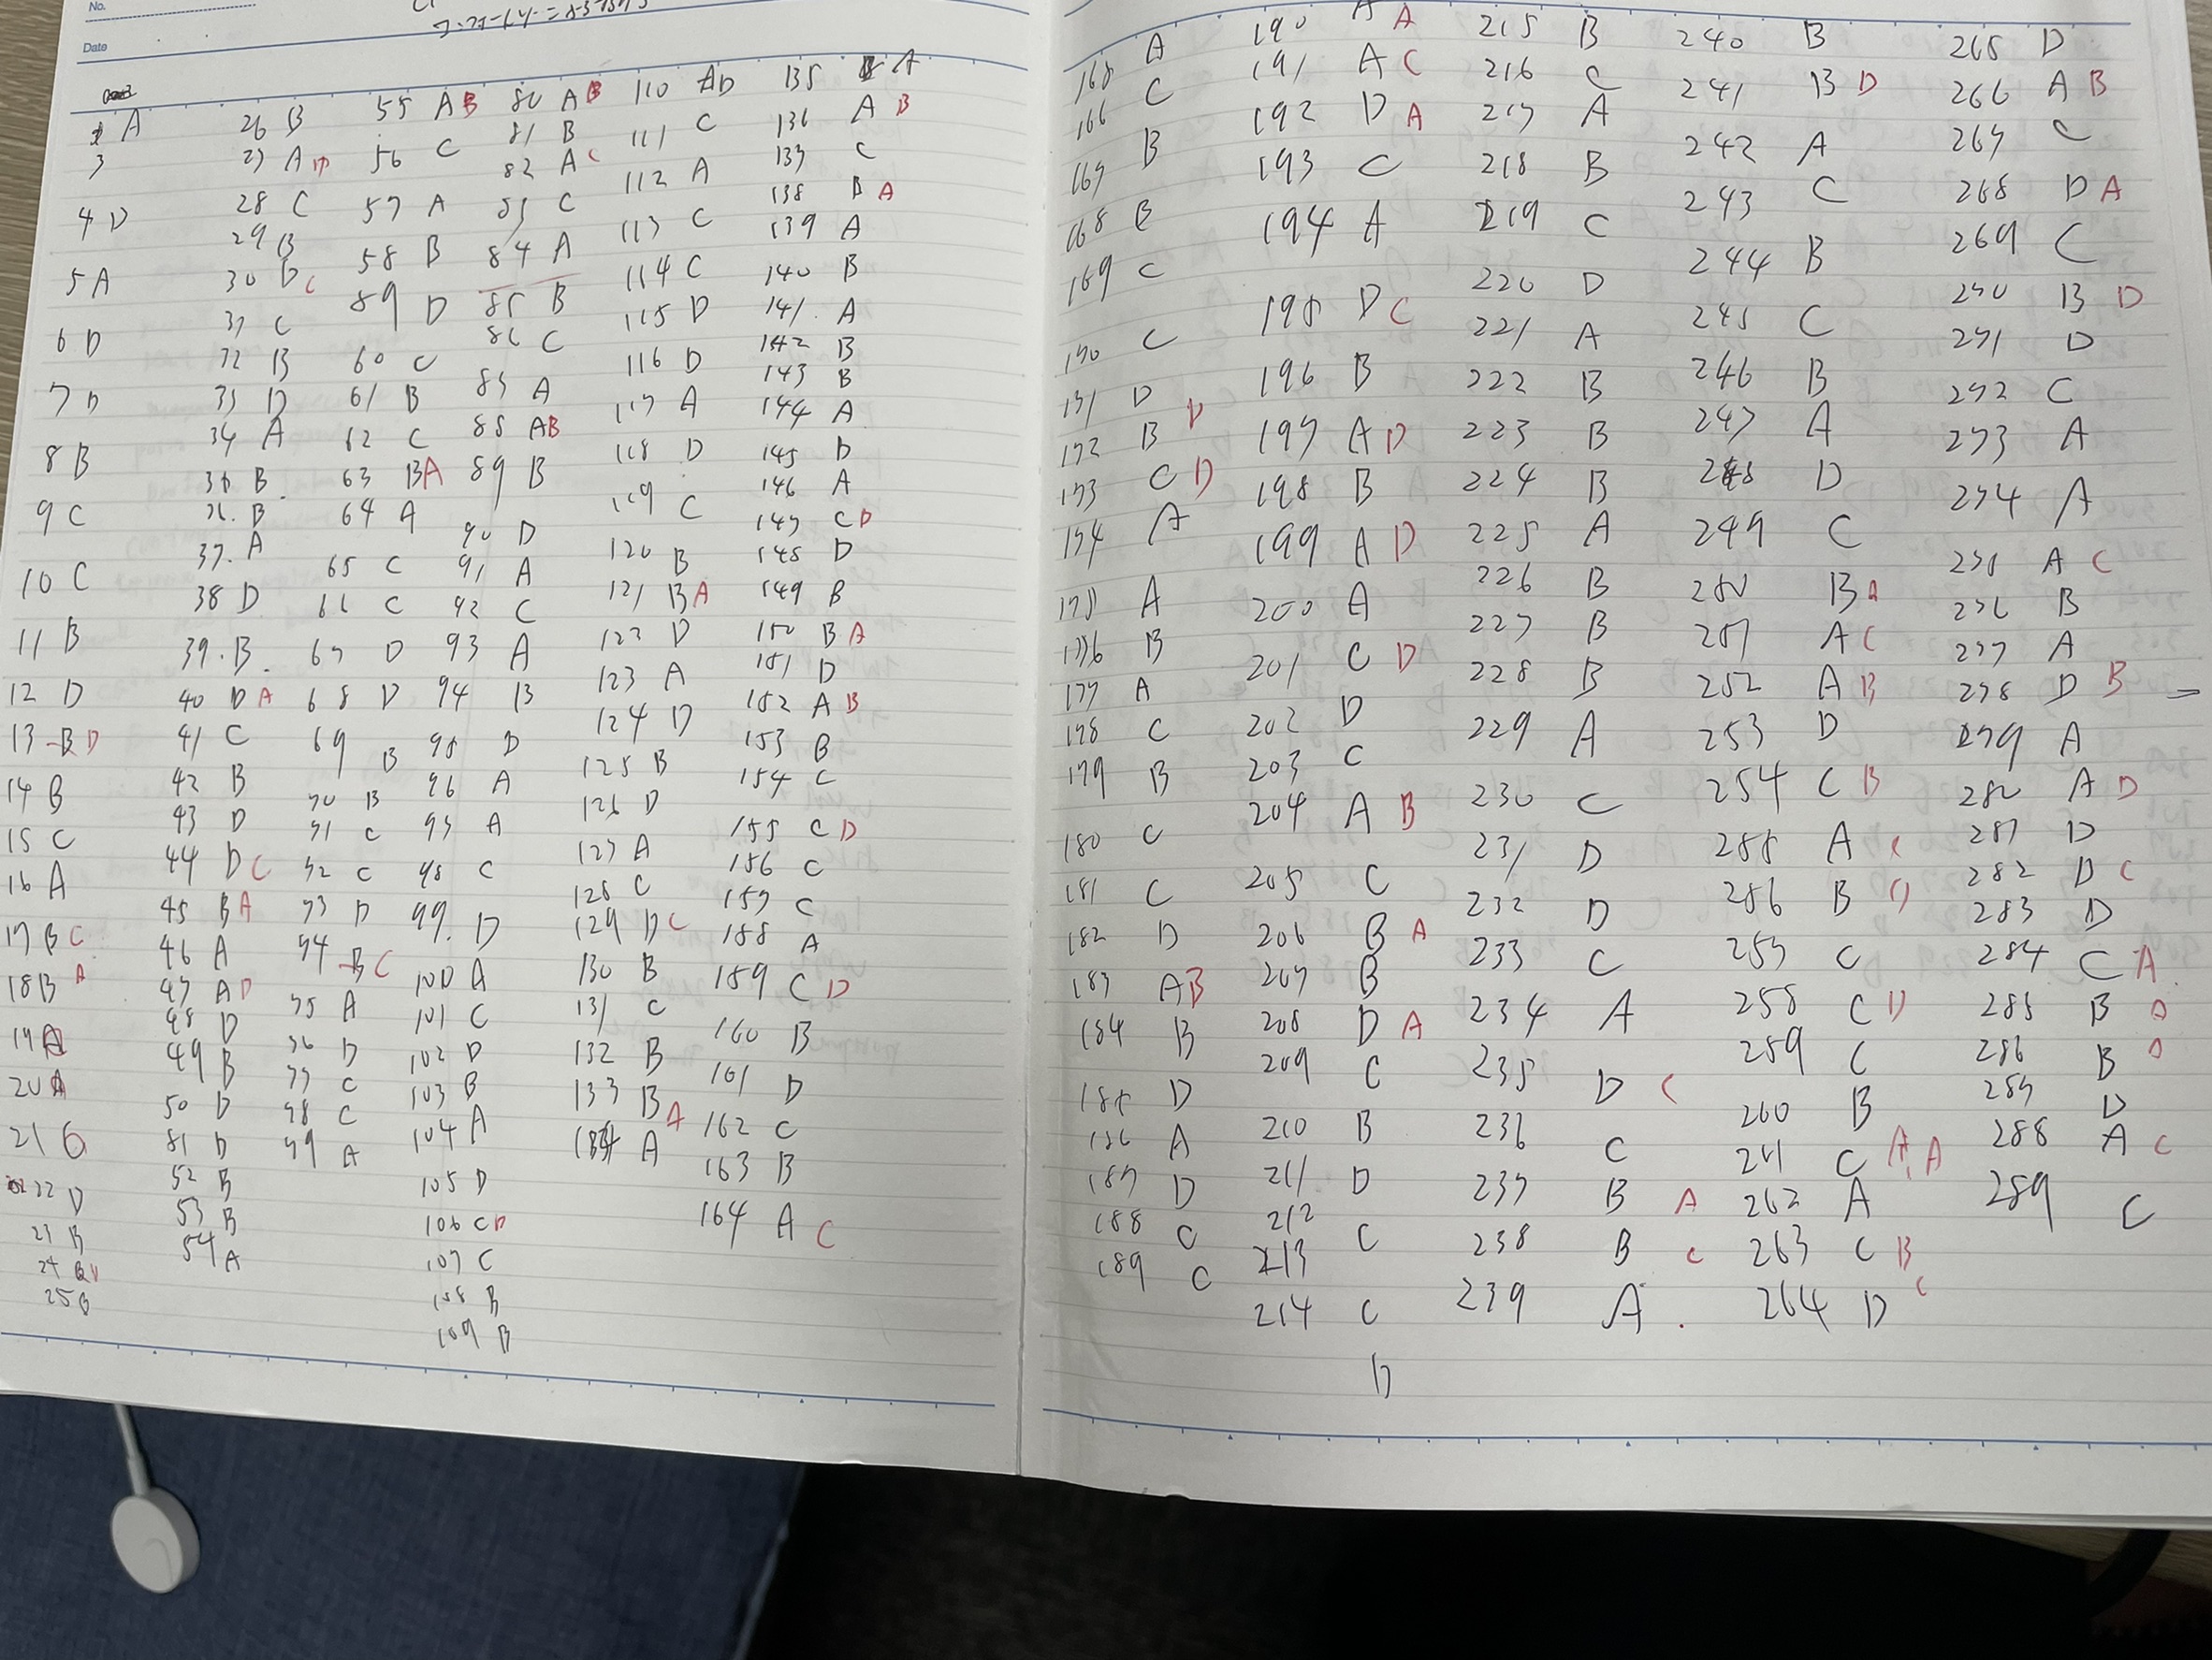 No.
Date
1 A
3
4 D
5 A
6 D
7 D
8 B
9 C
10 C
11 B
12 D
13 B D
14 B
15 C
16 A
17 B C
18 B A
19 A
20 A
21 C
22 D
23 B
24
25 B
26 B
27 A D
28 C
29 B
30 D C
31 C
32 B
33 D
34 A
35 B
36. B
37. A
38 D
39. B
40 D A
41 C
42 B
43 D
44 D C
45 B A
46 A
47 A D
48 D
49 B
50 D
51 D
52 B
53 B
54 A
55 A B
56 C
57 A
58 B
59 D
60 C
61 B
62 C
63 B A
64 A
65 C
66 C
67 D
68 D
69 B
70 B
71 C
72 C
73 D
74 B C
75 A
76 D
77 C
78 C
79 A
80 A B
81 B
82 A C
83 C
84 A
85 B
86 C
87 A
88 A B
89 B
90 D
91 A
92 C
93 A
94 B
95 D
96 A
97 A
98 C
99. D
100 A
101 C
102 D
103 B
104 A
105 D
106 C D
107 C
108 B
109 B
110 A D
111 C
112 A
113 C
114 C
115 D
116 D
117 A
118 D
119 C
120 B
121 B A
122 D
123 A
124 D
125 B
126 D
127 A
128 C
129 D C
130 B
131 C
132 B
133 B A
134 A
135 A
136 A B
137 C
138 B A
139 A
140 B
141. A
142 B
143 B
144 A
145 D
146 A
147 C D
148 D
149 B
150 B A
151 D
152 A B
153 B
154 C
155 C D
156 C
157 C
158 A
159 C D
160 B
161 D
162 C
163 B
164 A C
165 A
166 C
167 B
168 B
169 C
170 C
171 D
172 B D
173 C D
174 A
175 A
176 B
177 A
178 C
179 B
180 C
181 C
182 D
183 A B
184 B
185 D
186 A
187 D
188 C
189 C
190 A A
191 A C
192 D A
193 C
194 A
195 D C
196 B
197 A D
198 B
199 A D
200 A
201 C D
202 D
203 C
204 A B
205 C
206 B A
207 B
208 D A
209 C
210 B
211 D
212 C
213
214 C
D
215 B
216 C
217 A
218 B
219 C
220 D
221 A
222 B
223 B
224 B
225 A
226 B
227 B
228 B
229 A
230 C
231 D
232 D
233 C
234 A
235 D C
236 C
237 B A
238 B C
239 A .
240 B
241 B D
242 A
243 C
244 B
245 C
246 B
247 A
248 D
249 C
250 B A
251 A C
252 A B
253 D
254 C B
255 A C
256 B D
257 C
258 C D
259 C
260 B
261 C A A
262 A
263 C B
264 D C
265 D
266 A B
267 C
268 D A
269 C
270 B D
271 D
272 C
273 A
274 A
275 A C
276 B
277 A
278 D B
279 A
280 A D
281 D
282 D C
283 D
284 C A
285 B D
286 B D
287 D
288 A C
289 C